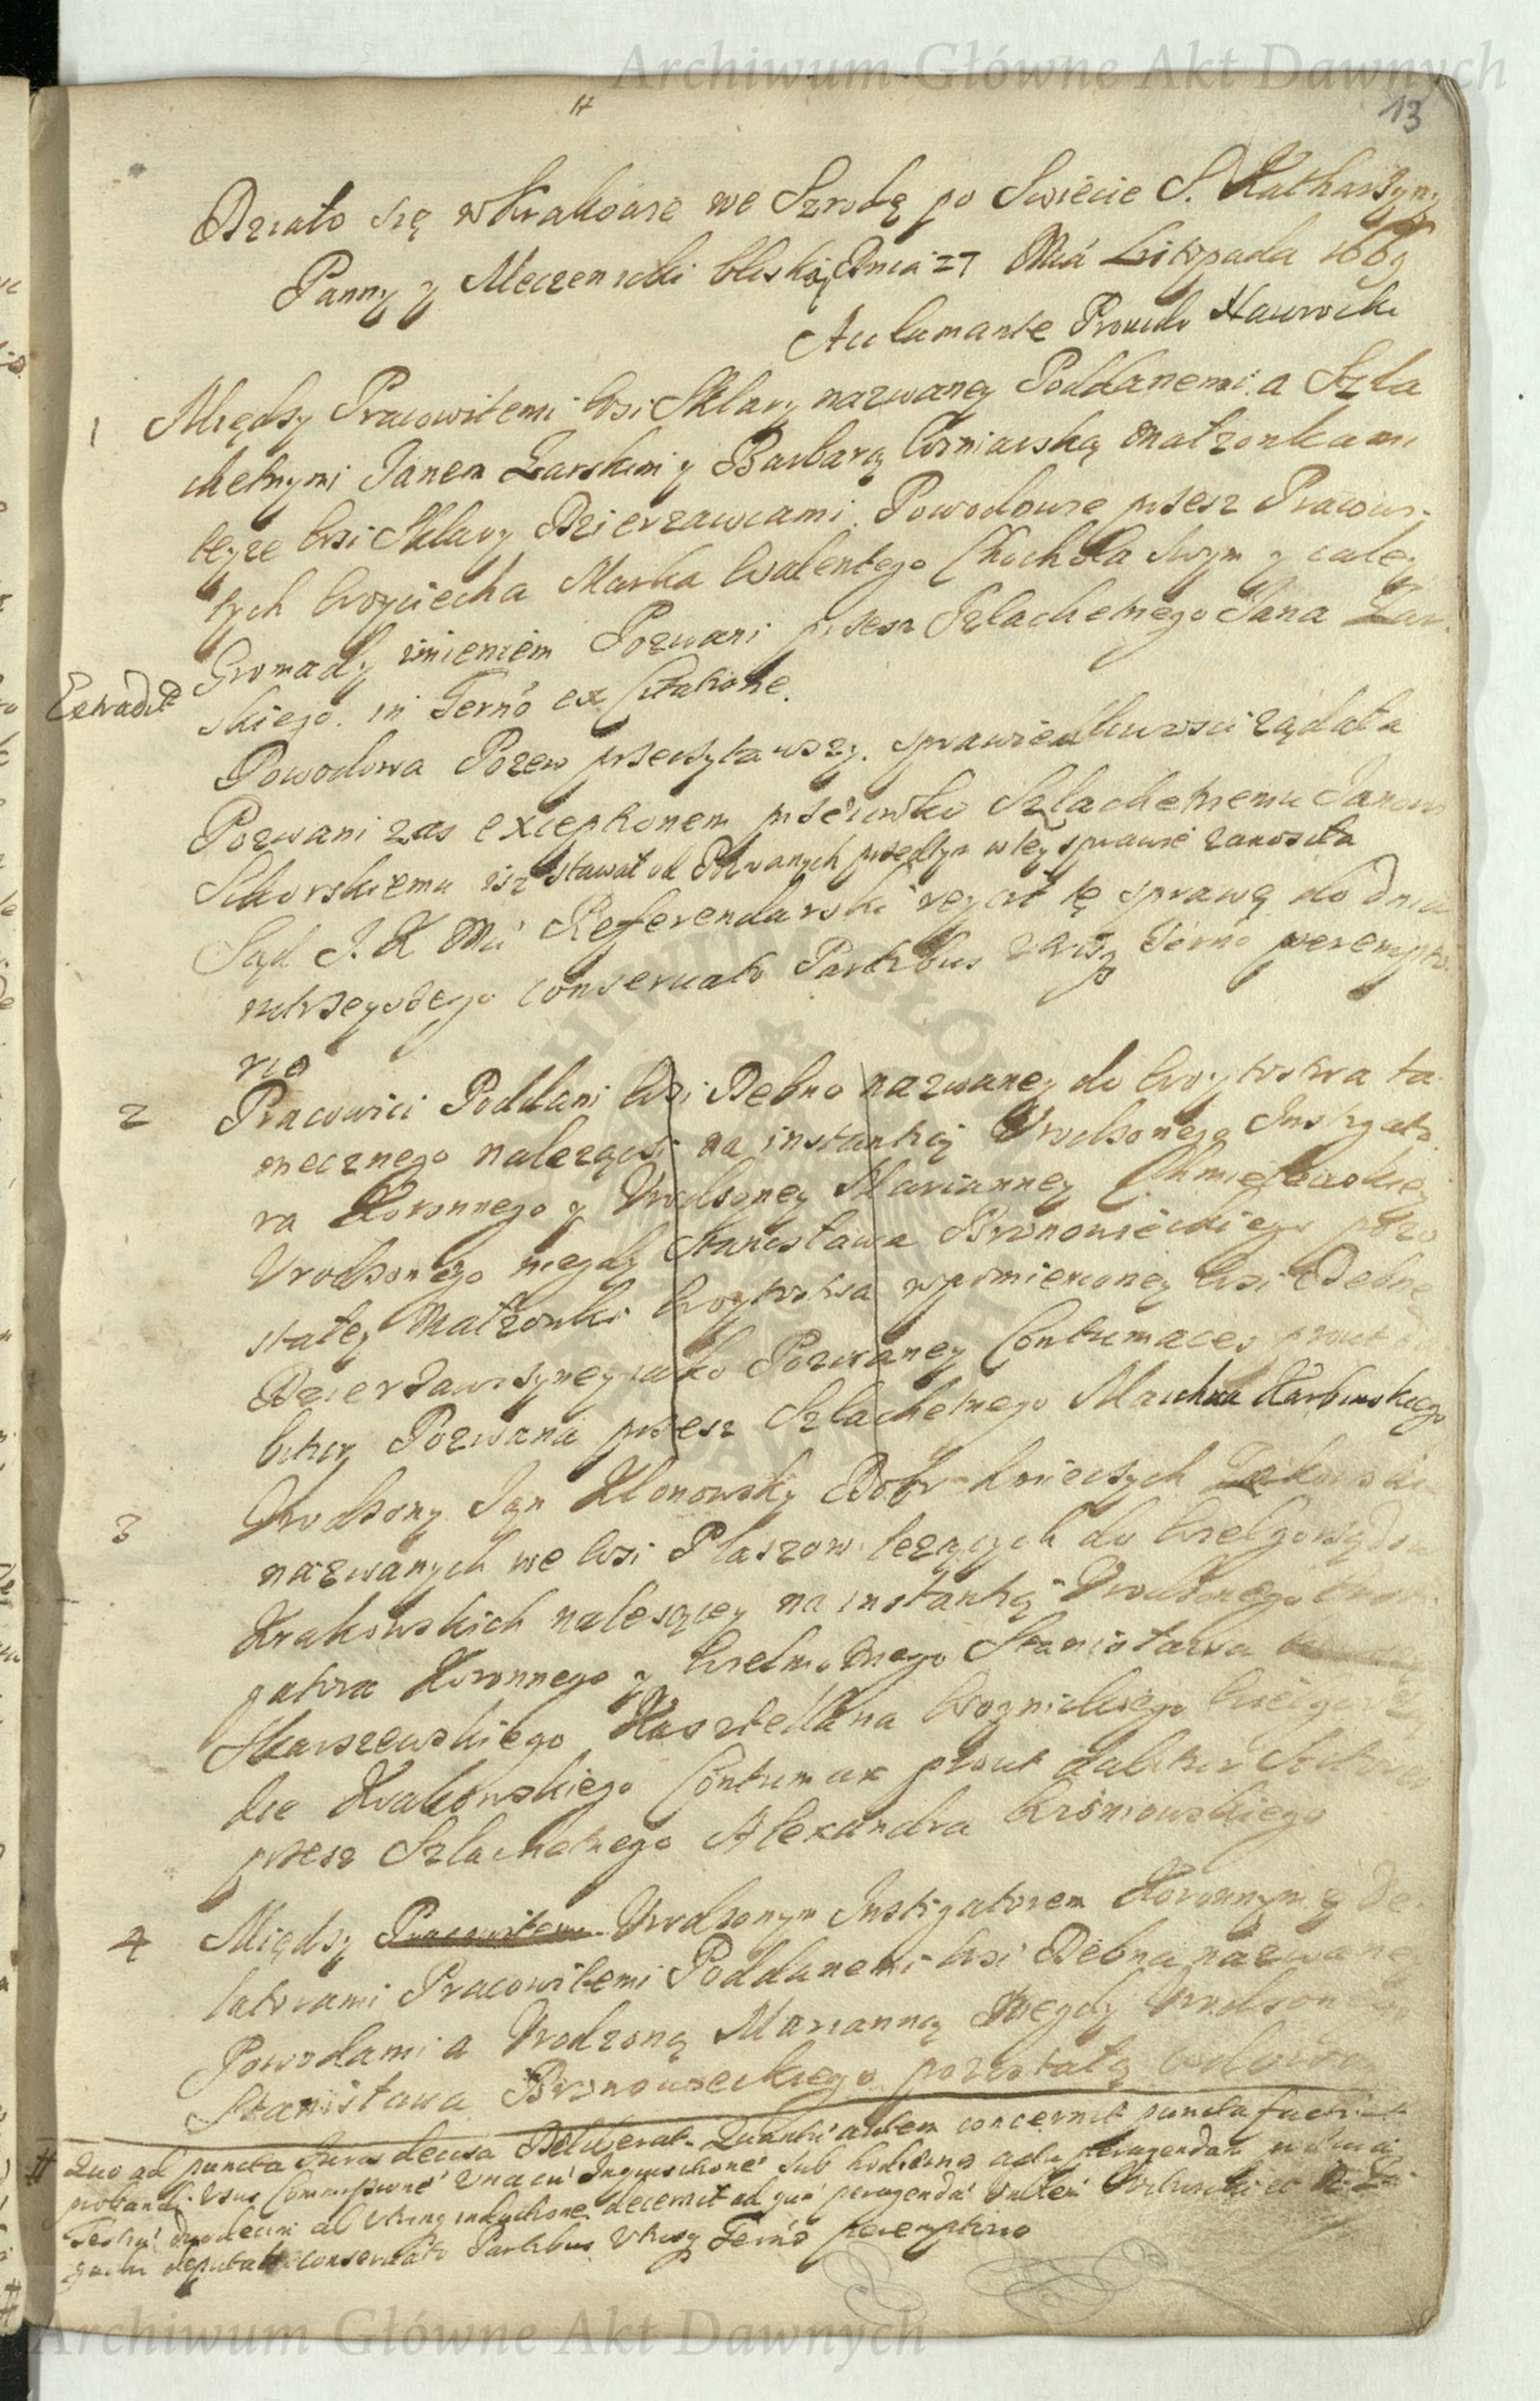 Archiwum Główne Akt Dawnych
13
Działo się w Krakowie we Szrodę po Swiecie S. Katharzyny
Panny y Męczenniki bliską Dnia 27 Mca Listopada 1669
Acclamante Prouido Nawrocki
1 Między Pracowitemi Wsi Sklary nazwaney Poddanemi a Szla
chetnymi Janem Żarskim y Barbarą Małzonkami
teyze Wsi Sklary Dzierzawcami Powodowie przesz Pracowi-
tych Woyciecha Marka Walentego Chochoła swym y całey
Gromady imieniem Pozwani przesz Szlachetnego Jana Żar
skiego in Term̃o ex Citatione.
Extradit
Powodowa Pozew przeczytawszy sprawiedliwosci ządała
Pozwani zas exceptionem przeciwko Szlachetnemu Janowi
Sikorskiemu isz stawał od Pozwanych przedtym w tey sprawie zanosiła
Sąd J. K Mci Referendarski tę sprawę do dnia
iutrzeyszego conseruato Partibus vtrisq Term̃o perempto
rio
2 Pracowici Poddani Wsi Dębno nazwaney do Woytostwa ta
mecznego nalezącey na instantią Vrodzonego Instygato
ra Koronnego y Vrodzoney Marianney Chmieleckiey
Vrodzonego niegdy Stanisława Brznowieckiego pozo
stałey Małzonki Woytostwa wpomienioney Wsi Dębne
Dzierzawczyney iako Pozwaney Contumaces prout
bitur Pozwana przesz Szlachetnego Marcina Karbinskiego
3 Vrodzony Jan Klonowsky Dobr Kmieczych
nazwanych we Wsi Płaszow lezących do Wielgorządow
Krakowskich nalezącey na instantią Vrodzonego Insti
gatora Koronnego y Wielmoznego Stanisława
Skarszewskiego Kasztellana Woynickiego Wielgorzą
dce Krakowskiego Contumax prout dabitur
przesz Szlachetnego Alexandra Wisniowskiego
4 Między Vrodzonym Instigatorem Koronnym y De
latorami Pracowitemi Poddanemi Wsi Dębna nazwaney
Powodami a Vrodzoną Marianną Niegdy Vrodzonego
Stanisława Brznowieckiego pozostałą wdową
# Quo ad puncta Juris decisa Deliberat. Quantũ autem concernit puncta facti
probandi Vnacũ Inquisitione sub hodierno actu peragendam
Testiũ duodecim ab vtrinq inductione decernit ad quã peragendã
deputat conseruato Partibus Vtrisq Term̃o peremptorio
Archiwum Główne Akt Dawnych